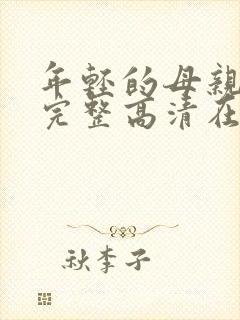 年轻的母亲
完整高清在
秋李子